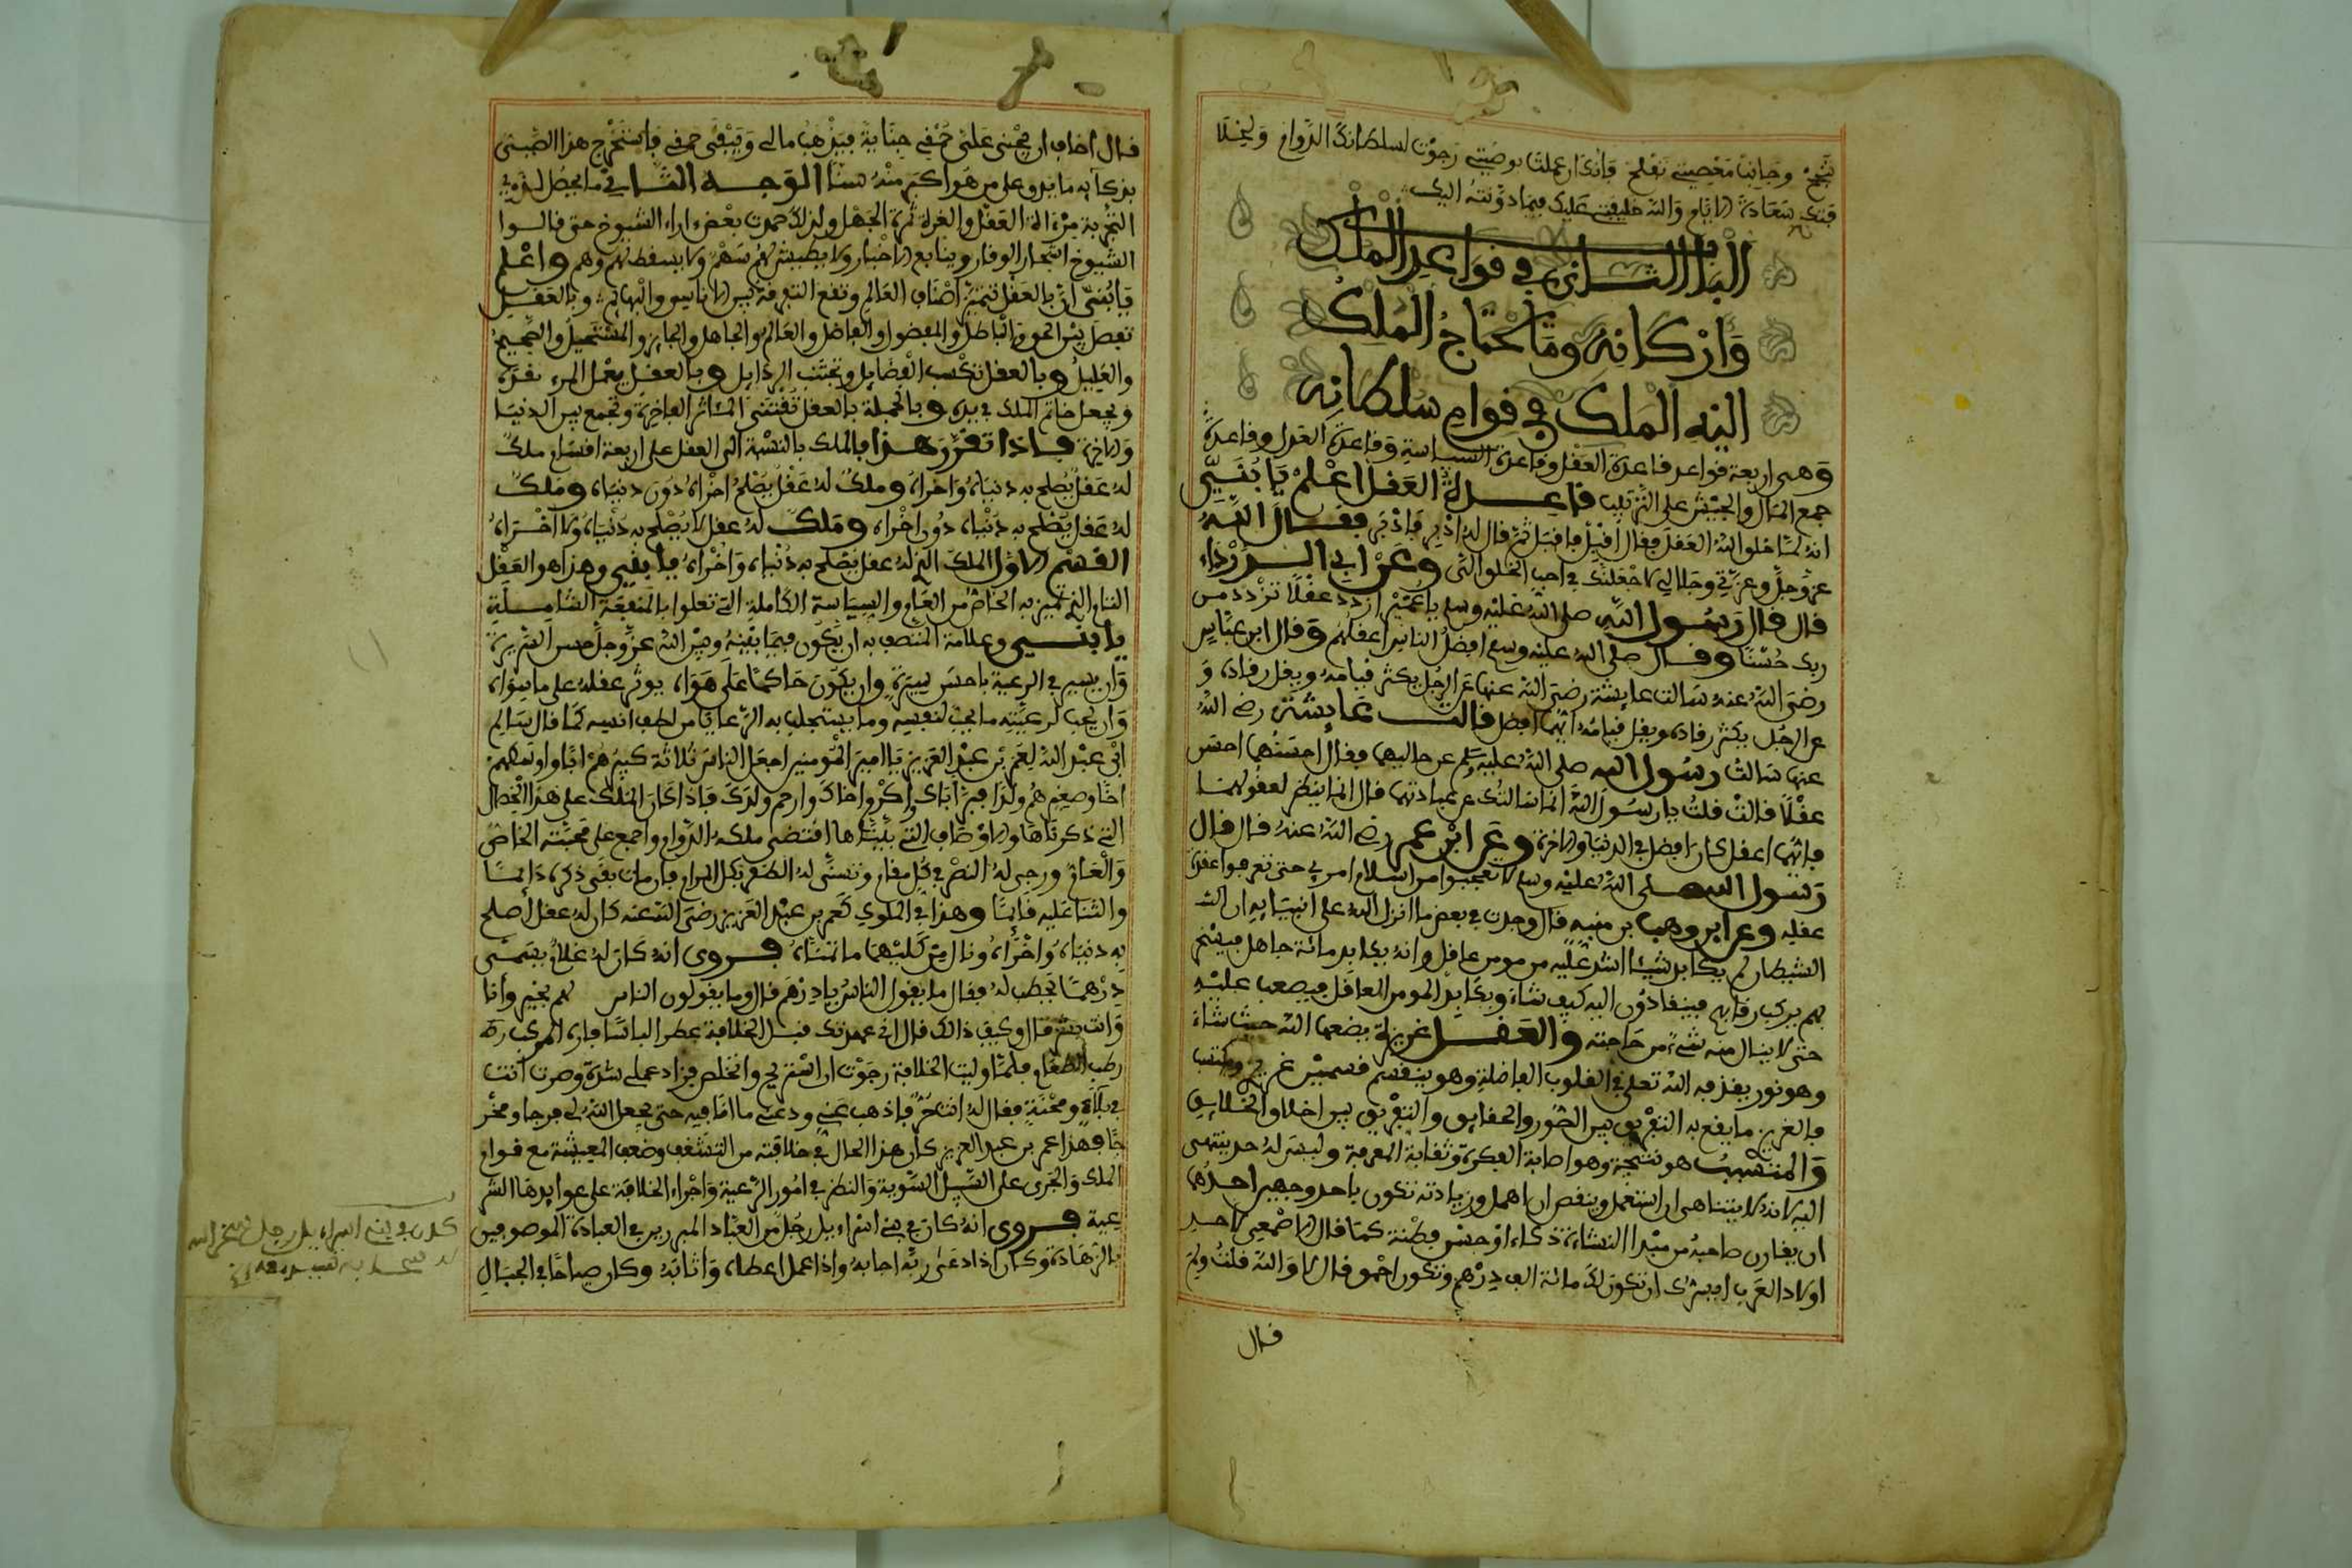 تنجح وجانب معصيتي تفلح فإنك ان عملت بوصيتي رجوت لسلطانك الدوام ولخلا
فتك سعادة الايام والله خليفتي عليك فيما دونته اليك
الباب الثاني في قواعد الملك
وأركانه وما يحتاج الملك
اليه الملك في قوام سلطانه
وهي اربعة قواعد قاعدة العقل وقاعدة السياسة وقاعدة العدل وقاعدة
جمع المال والجيش على الترتيب قاعدة العقل اعلم يا بني
انه لما خلق الله العقل فقال له أقبل فأقبل ثم قال له ادبر فأدبر فقال الله
عز وجل وعزتي وجلالي لا جعلتك في احب الخلق الي وعن ابي الدرداء
قال قال رسول الله صلى الله عليه وسلم يا عويمر ازدد عقلا تزدد من
ربك حسنا وقال صلى الله عليه وسلم افضل الناس اعقلهم وقال ابن عباس
رضي الله عنه سالت عايشة رضي الله عنها عن الرجل يكثر قيامه ويقل رقاده و
عن الرجل يكثر رقاده ويقل قيامه ايهما افضل قالت عايشة رضي الله
عنها سالت رسول الله صلى الله عليه وسلم عن حاليهما فقال احسنهما احسن
عقلا قالت قلت يا رسول الله انما سالتك عن عبادتهما قال انما ينظر لعقولهما
فايهما اعقل كان افضل في الدنيا والاخرة وعن ابن عمر رضي الله عنه قال قال
رسول الله صلى الله عليه وسلم لا تعجبوا من اسلام امرئ حتى تعرفوا عقدة
عقله وعن ابن وهب بن منبه قال وجدت في بعض ما انزل الله على انبيايه ان
الشيطان لم يكابد شيئا اشد عليه من مومن عاقل وانه يكابد مائة جاهل
بهم يركب رقابهم فينقادون اليه كيف شاء ويكابد المومن العاقل فيصعب عليه
حتى لا ينال منه شيء من حاجته والعقل غريزة يضعها الله حيث شاء
وهو نور يقذفه الله تعلى في القلوب الفاضلة وهو ينقسم قسمين غريزي ومكتسب
فالغريزي ما يقع به التفريق بين الصور والحقايق والتفريق بين اخلاق الخلايق
والمكتسب هو نتيجة وهو اصابة الفكرة وثقابة المعرفة وليس له حد ينتهي
اليه لانه لا يتناهى ان استعمل وينقص ان اهمل وزيادته تكون باحد وجهين احدهما
ان يقارن صاحبه من مبدا النشاة ذكاء او حسن فطنة كما قال الاصمعي لاحد
اولاد العرب ايسرك ان تكون لك مائة الف درهم وتكون احمق قال لا والله قلت ولم
قال
قال اخاف ان يجني علي حمقي جناية فيذهب مالي ويبقى حمقي فاستخرج هذا الصبي
بذكايه ما يدق على من هو اكبر منه سنا الوجه الثاني ما يحصل لذوي
التجربة مرءاة العقل والغرة ثمرة الجهل ولذلك حمدت بعض اراء الشيوخ حتى قالوا
الشيوخ اشجار الوقار وينابيع الاخبار ولا يطيش لهم سهم ولا يسقط لهم وهم واعلم
يا بني ان بالعقل تتميز اصناف العالم وتقع التفرقة بين الاناسي والبهايم وبالعقل
تفصل بين الحق والباطل والمفضول والفاضل والعالم والجاهل والجايز والمستحيل والصحيح
والعليل وبالعقل تكسب الفضايل وتجتنب الرذايل وبالعقل يعمل المرء
ويجعل خاتم الملك في يده وبالجملة بالعقل تقتنى المئاثر الفاخرة وتجمع بين الدنيا
والاخرة فاذا تقرر هذا فالملك بالنسبة الى العقل على اربعة اقسام ملك
له عقل يصلح به دنياه واخراه وملك له عقل يصلح اخراه دون دنياه وملك
له عقل يصلح به دنياه دون اخراه وملك له عقل لا يصلح به دنياه ولا اخراه
القسم الاول الملك الذي له عقل يصلح به دنياه واخراه يا بني وهذا هو العقل
التام الذي تميز به الخاص من العام والسياسة الكاملة التي تعلوا بالمنفعة الشاملة
يا بني وعلامة المتصف به ان يكون فيما بينه وبين الله عز وجل حسن السريرة
وان يسير في الرعية باحسن سيرة وان يكون حاكما على هواه يوثر عقله على ما سواه
وان يحب لرعيته ما يحب لنفسه وما يستجلب به الرعايا من لطف انسه كما قال سالم
ابن عبد الله لعمر بن عبد العزيز يا امير المومنين اجعل الناس ثلاثة كبيرهم ابا واوسطهم
اخا وصغيرهم ولدا فبر أباك واكرم اخاك وارحم ولدك فاذا كان الملك على هذا الخصال
التي ذكرناها والاوصاف التي بيناها اقتضى ملكه الدوام واجمع على محبته الخاص
والعام ورجي له النصر في كل مقام وتسنى له الظفر بكل المرام فان مات بقى ذكره دايما
والثنا عليه قايما وهذا في الملوك كعمر بن عبد العزيز رضي الله عنه كان له عقل أصلح
به دنياه واخراه ونال من كلتيهما ما تمناه فروي انه كان له غلام يسمى
درهما يحطب له فقال ما يقول الناس يا درهم قال وما يقولون الناس كلهم بخير وأنا
وانت بشر قال وكيف ذلك قال اني عهدتك قبل الخلافة عطر الباسا فاره المركب
رطب الطعام فلما وليت الخلافة رجوت ان استريح واتخلص فزاد عملي شدة وصرت انت
في بلاء ومحنة فقال له انت حر فاذهب عني ودعني ما انا فيه حتى يجعل الله لي فرجا ومخر
جا فهذا عمر بن عبد العزيز كان هذا الحال في خلافته من التقشف وضعف المعيشة مع قوام
الملك والجري على السبل السوية والنظر في امور الرعية واجراء الخلافة على عوايدها الشر
عية فروي انه كان في بني اسراءيل رجل من العباد المبرزين في العبادة الموصوفين
بالزهادة وكان اذا دعى ربه اجابه واذا عمل اعطاه واثابه وكان صياحا في الجبال
كان في بني اسراءيل رجل سخر الله
له سحابة تسير معه